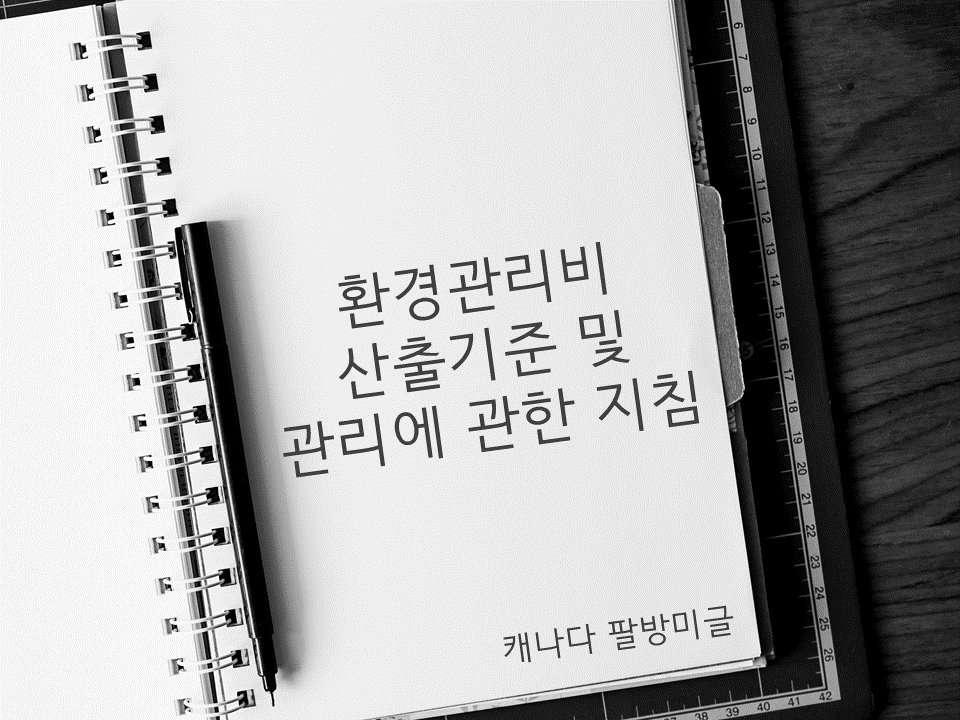 환경관리비
산출기준 및
관리에 관한 지침
캐나다 팔방미글
6
7
8
9
10
11
12
13
14
15
16
17
18
19
20
21
22
23
24
25
26
38 39 40 41 42